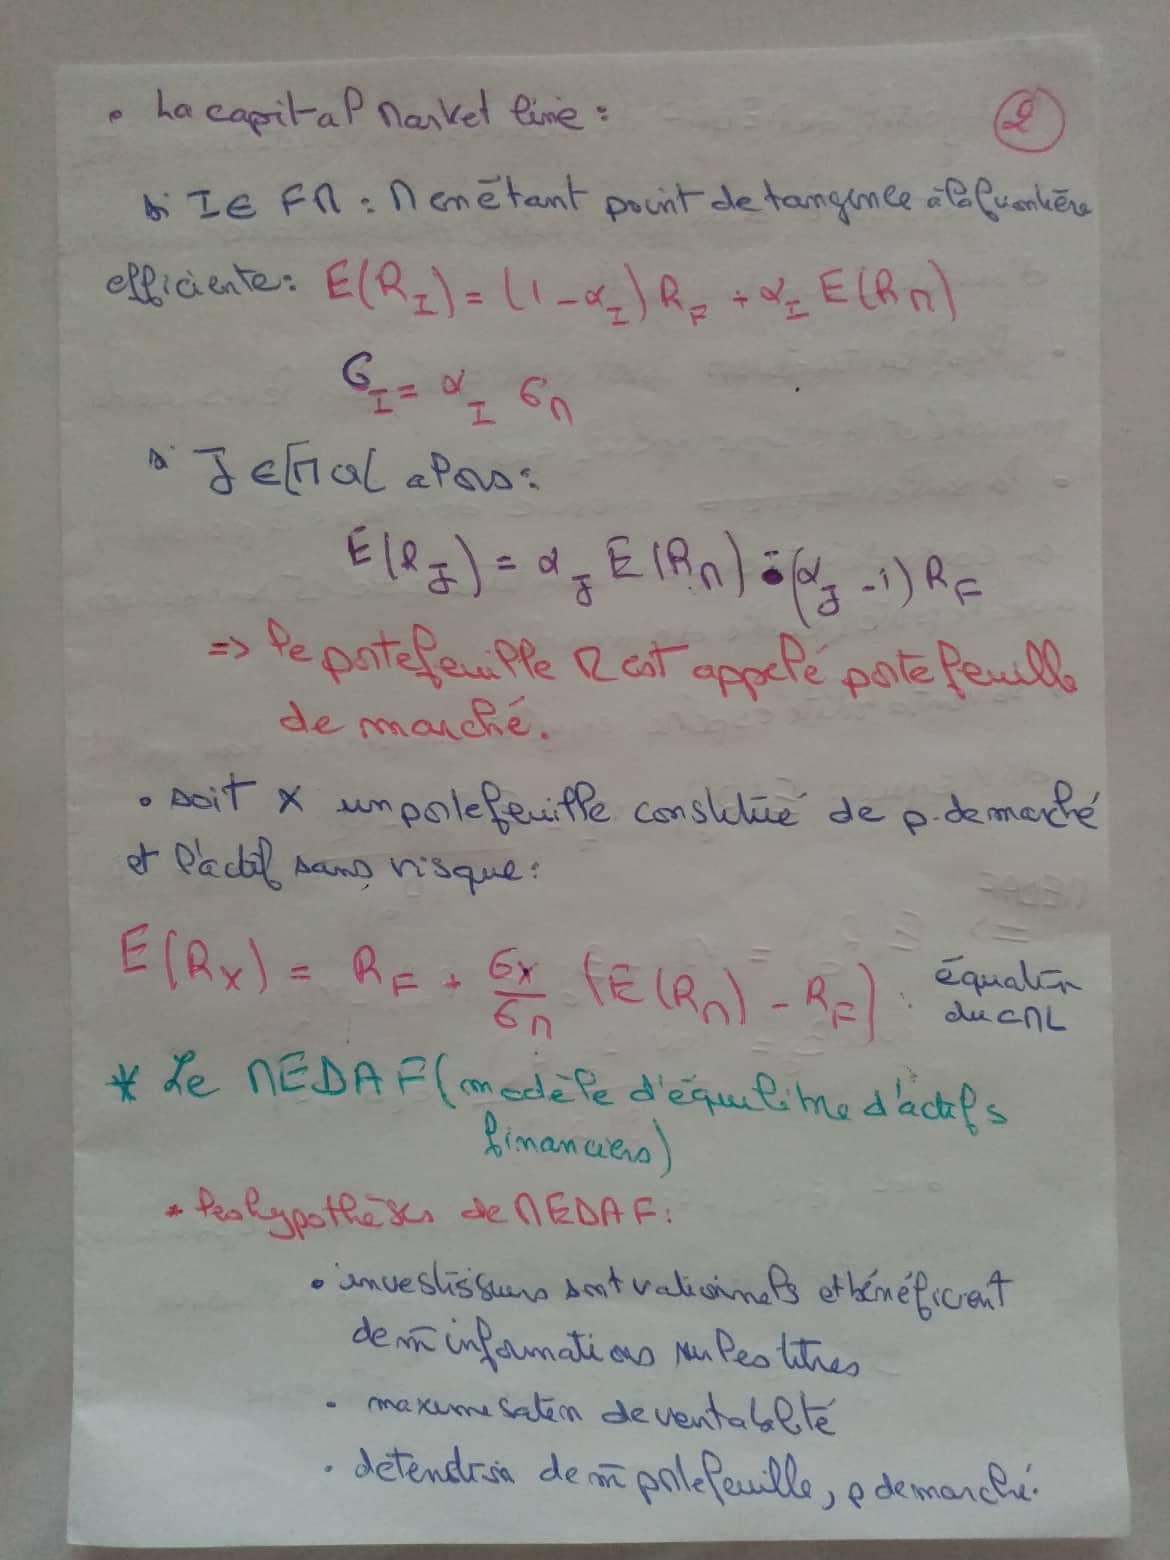 • La capital Market line :
2
si I ∈ FM : M en étant point de tangence à la frontière
efficiente : E(R_I) = (1 - α_I) R_F + α_I E(R_M)
σ_I = α_I σ_M
si J ∈ [M α[ alors :
E(R_J) = α_J E(R_M) - (α_J - 1) R_F
=> le portefeuille M est appelé portefeuille
de marché.
• soit X un portefeuille constitué de p. de marché
et l'actif sans risque :
E(R_X) = R_F + σ_X/σ_M (E(R_M) - R_F) : équation
du CML
* Le MEDAF (modèle d'équilibre d'actifs
financiers)
* les hypothèses de MEDAF :
• investisseurs sont rationnels et bénéficient
de m̄ informations sur les titres
• maximisation de rentabilité
• détention de m̄ portefeuille, p de marché.